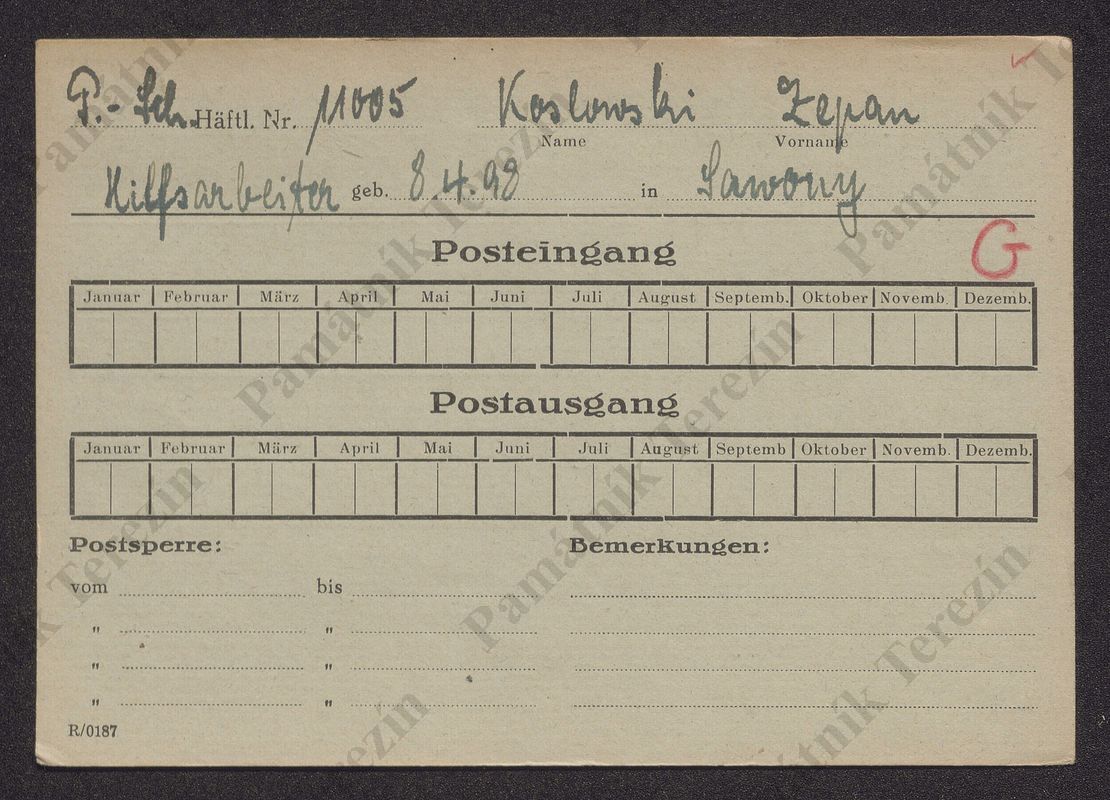 P.- Sch. Häftl. Nr. 11005 Koslowski Zepan
Name Vorname
Hilfsarbeiter geb. 8.4.98 in Sawony
G
Posteingang
Januar Februar März April Mai Juni Juli August Septemb. Oktober Novemb. Dezemb.
Postausgang
Januar Februar März April Mai Juni Juli August Septemb Oktober Novemb. Dezemb.
Postsperre: Bemerkungen:
vom bis
" "
" "
" "
R/0187
Památník Terezín